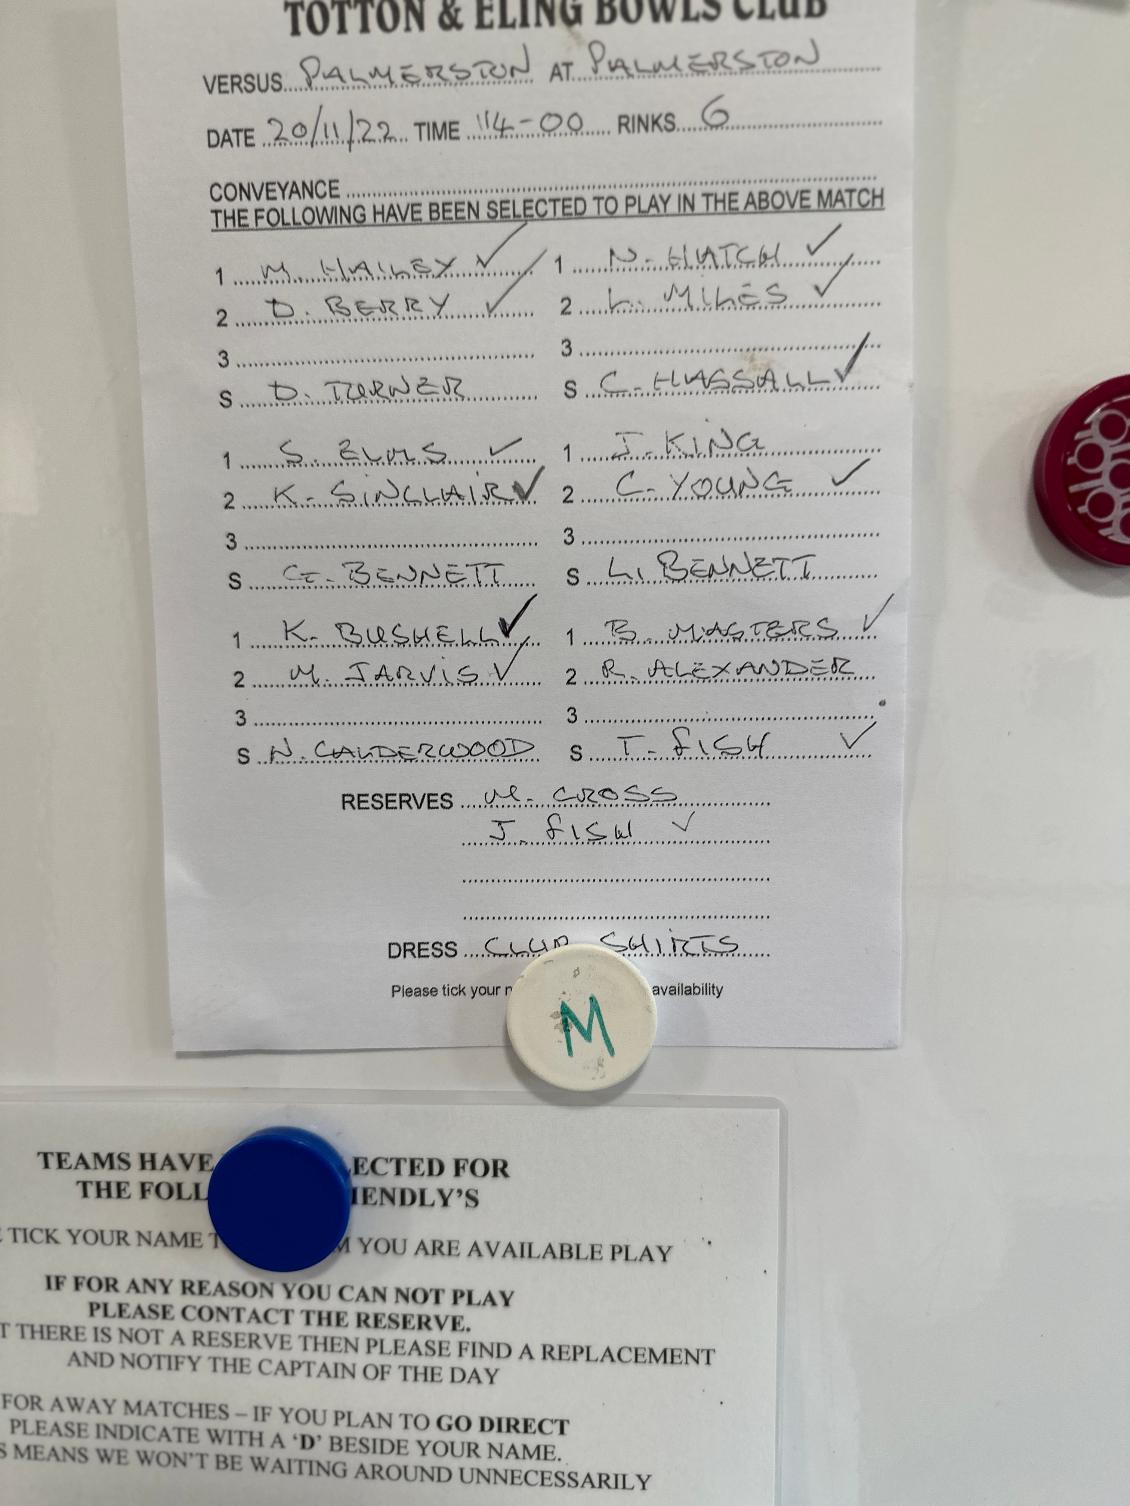 TOTTON & ELING BOWLS CLUB
VERSUS PALMERSTON AT PALMERSTON
DATE 20/11/22 TIME 14-00 RINKS 6
CONVEYANCE
THE FOLLOWING HAVE BEEN SELECTED TO PLAY IN THE ABOVE MATCH
1 M. HAILEY ✓ 1 N. HATCH ✓
2 D. BERRY ✓ 2 L. MILES ✓
3 3
S D. TURNER S C. HASSALL ✓
1 S. ELMS ✓ 1 J. KING
2 K. SINCLAIR ✓ 2 C. YOUNG ✓
3 3
S G. BENNETT S L. BENNETT
1 K. BUSHELL ✓ 1 B. MASTERS ✓
2 M. JARVIS ✓ 2 R. ALEXANDER
3 3
S N. CALDERWOOD S T. FISH ✓
RESERVES M. CROSS
J. FISH ✓
DRESS CLUB SHIRTS
Please tick your availability
M
TEAMS HAVE ECTED FOR
THE FOLL IENDLY'S
TICK YOUR NAME YOU ARE AVAILABLE PLAY
IF FOR ANY REASON YOU CAN NOT PLAY
PLEASE CONTACT THE RESERVE.
T THERE IS NOT A RESERVE THEN PLEASE FIND A REPLACEMENT
AND NOTIFY THE CAPTAIN OF THE DAY
FOR AWAY MATCHES – IF YOU PLAN TO GO DIRECT
PLEASE INDICATE WITH A 'D' BESIDE YOUR NAME.
S MEANS WE WON'T BE WAITING AROUND UNNECESSARILY